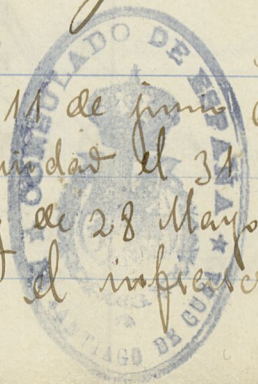 CONSULADO DE ESPAÑA
11 de junio
el 31
de 28 Mayo
el infrascr
SANTIAGO DE CUBA